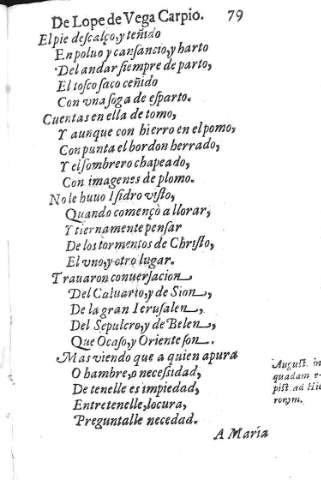 De Lope de Vega Carpio. 79
El pie descalço, y teñido
En poluo y cansancio, y harto
Del andar siempre de parto,
El tosco saco ceñido
Con vna soga de esparto.
Cuentas en ella de tomo,
Y aunque con hierro en el pomo,
Con punta el bordon herrado,
Y el sombrero chapeado,
Con imagenes de plomo.
No le huuo Isidro visto,
Quando començò a llorar,
Y tiernamente pensar
De los tormentos de Christo,
El vno, y otro lugar.
Trauaron conuersacion
Del Caluario, y de Sion,
De la gran Ierusalen,
Del Sepulcro, y de Belen,
Que Ocaso, y Oriente son.
Mas viendo que a quien apura
O hambre, o necessidad,
De tenelle es impiedad,
Entretenelle, locura,
Preguntalle necedad.
August. in
quadam e-
pist. ad Hie
ronym.
A Maria